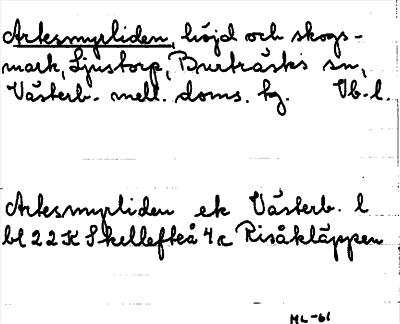 Artesmyrliden, höjd och skogs-
mark, Ljustorp, Burträsks sn,
Västerb. mell. doms. tg. Vb. l.
Artesmyrliden ek Västerb. l
bl 22K Skellefteå 4c Risåkläppen
ML-61